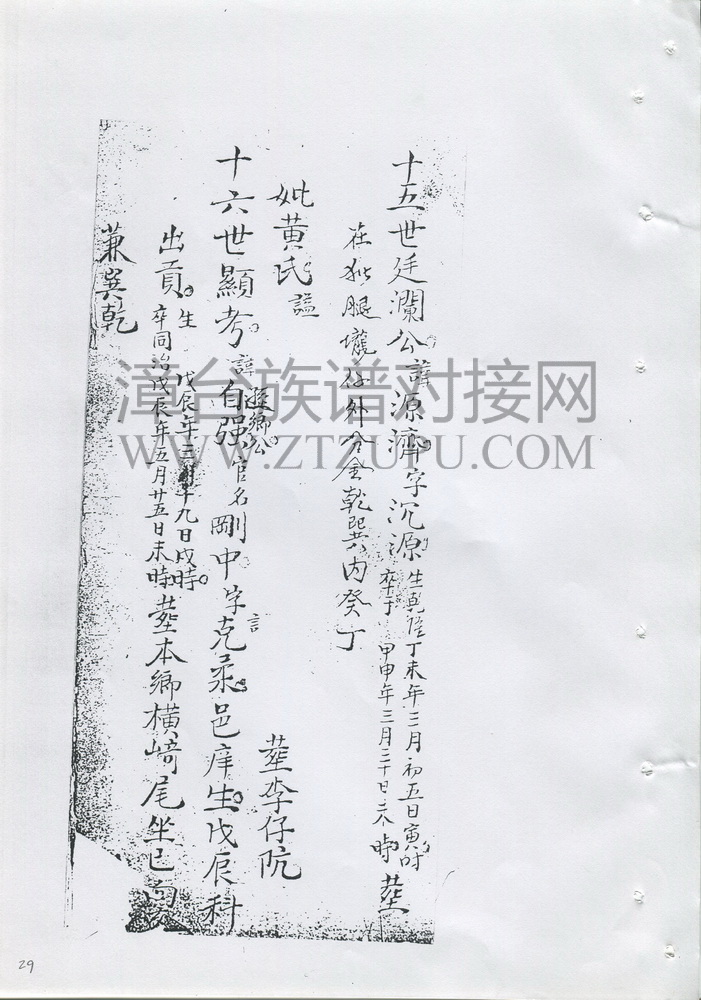 十五世廷瀾公諱源濟字沉源生乾隆丁未年三月初五日寅时卒于甲申年三月二十日時塟
在腿壠仔外分金乾巽内癸丁
妣黄氏諡 塟李仔阬
十六世顯考諱自强官名剛中字克柔邑庠生戊辰科
遊鄉公
言
出貢生戊辰年三月十九日戌時卒同治戊辰年五月廿五日未時塟本鄉橫崎尾坐巳向
兼巽乾
漳台族谱对接网
WWW.ZTZUPU.COM
29